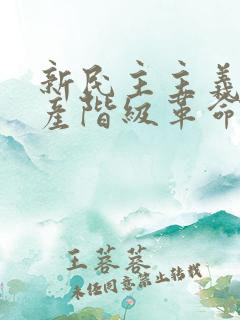 新民主主義
產階級革命
王蓉蓉
未经同意禁止转载